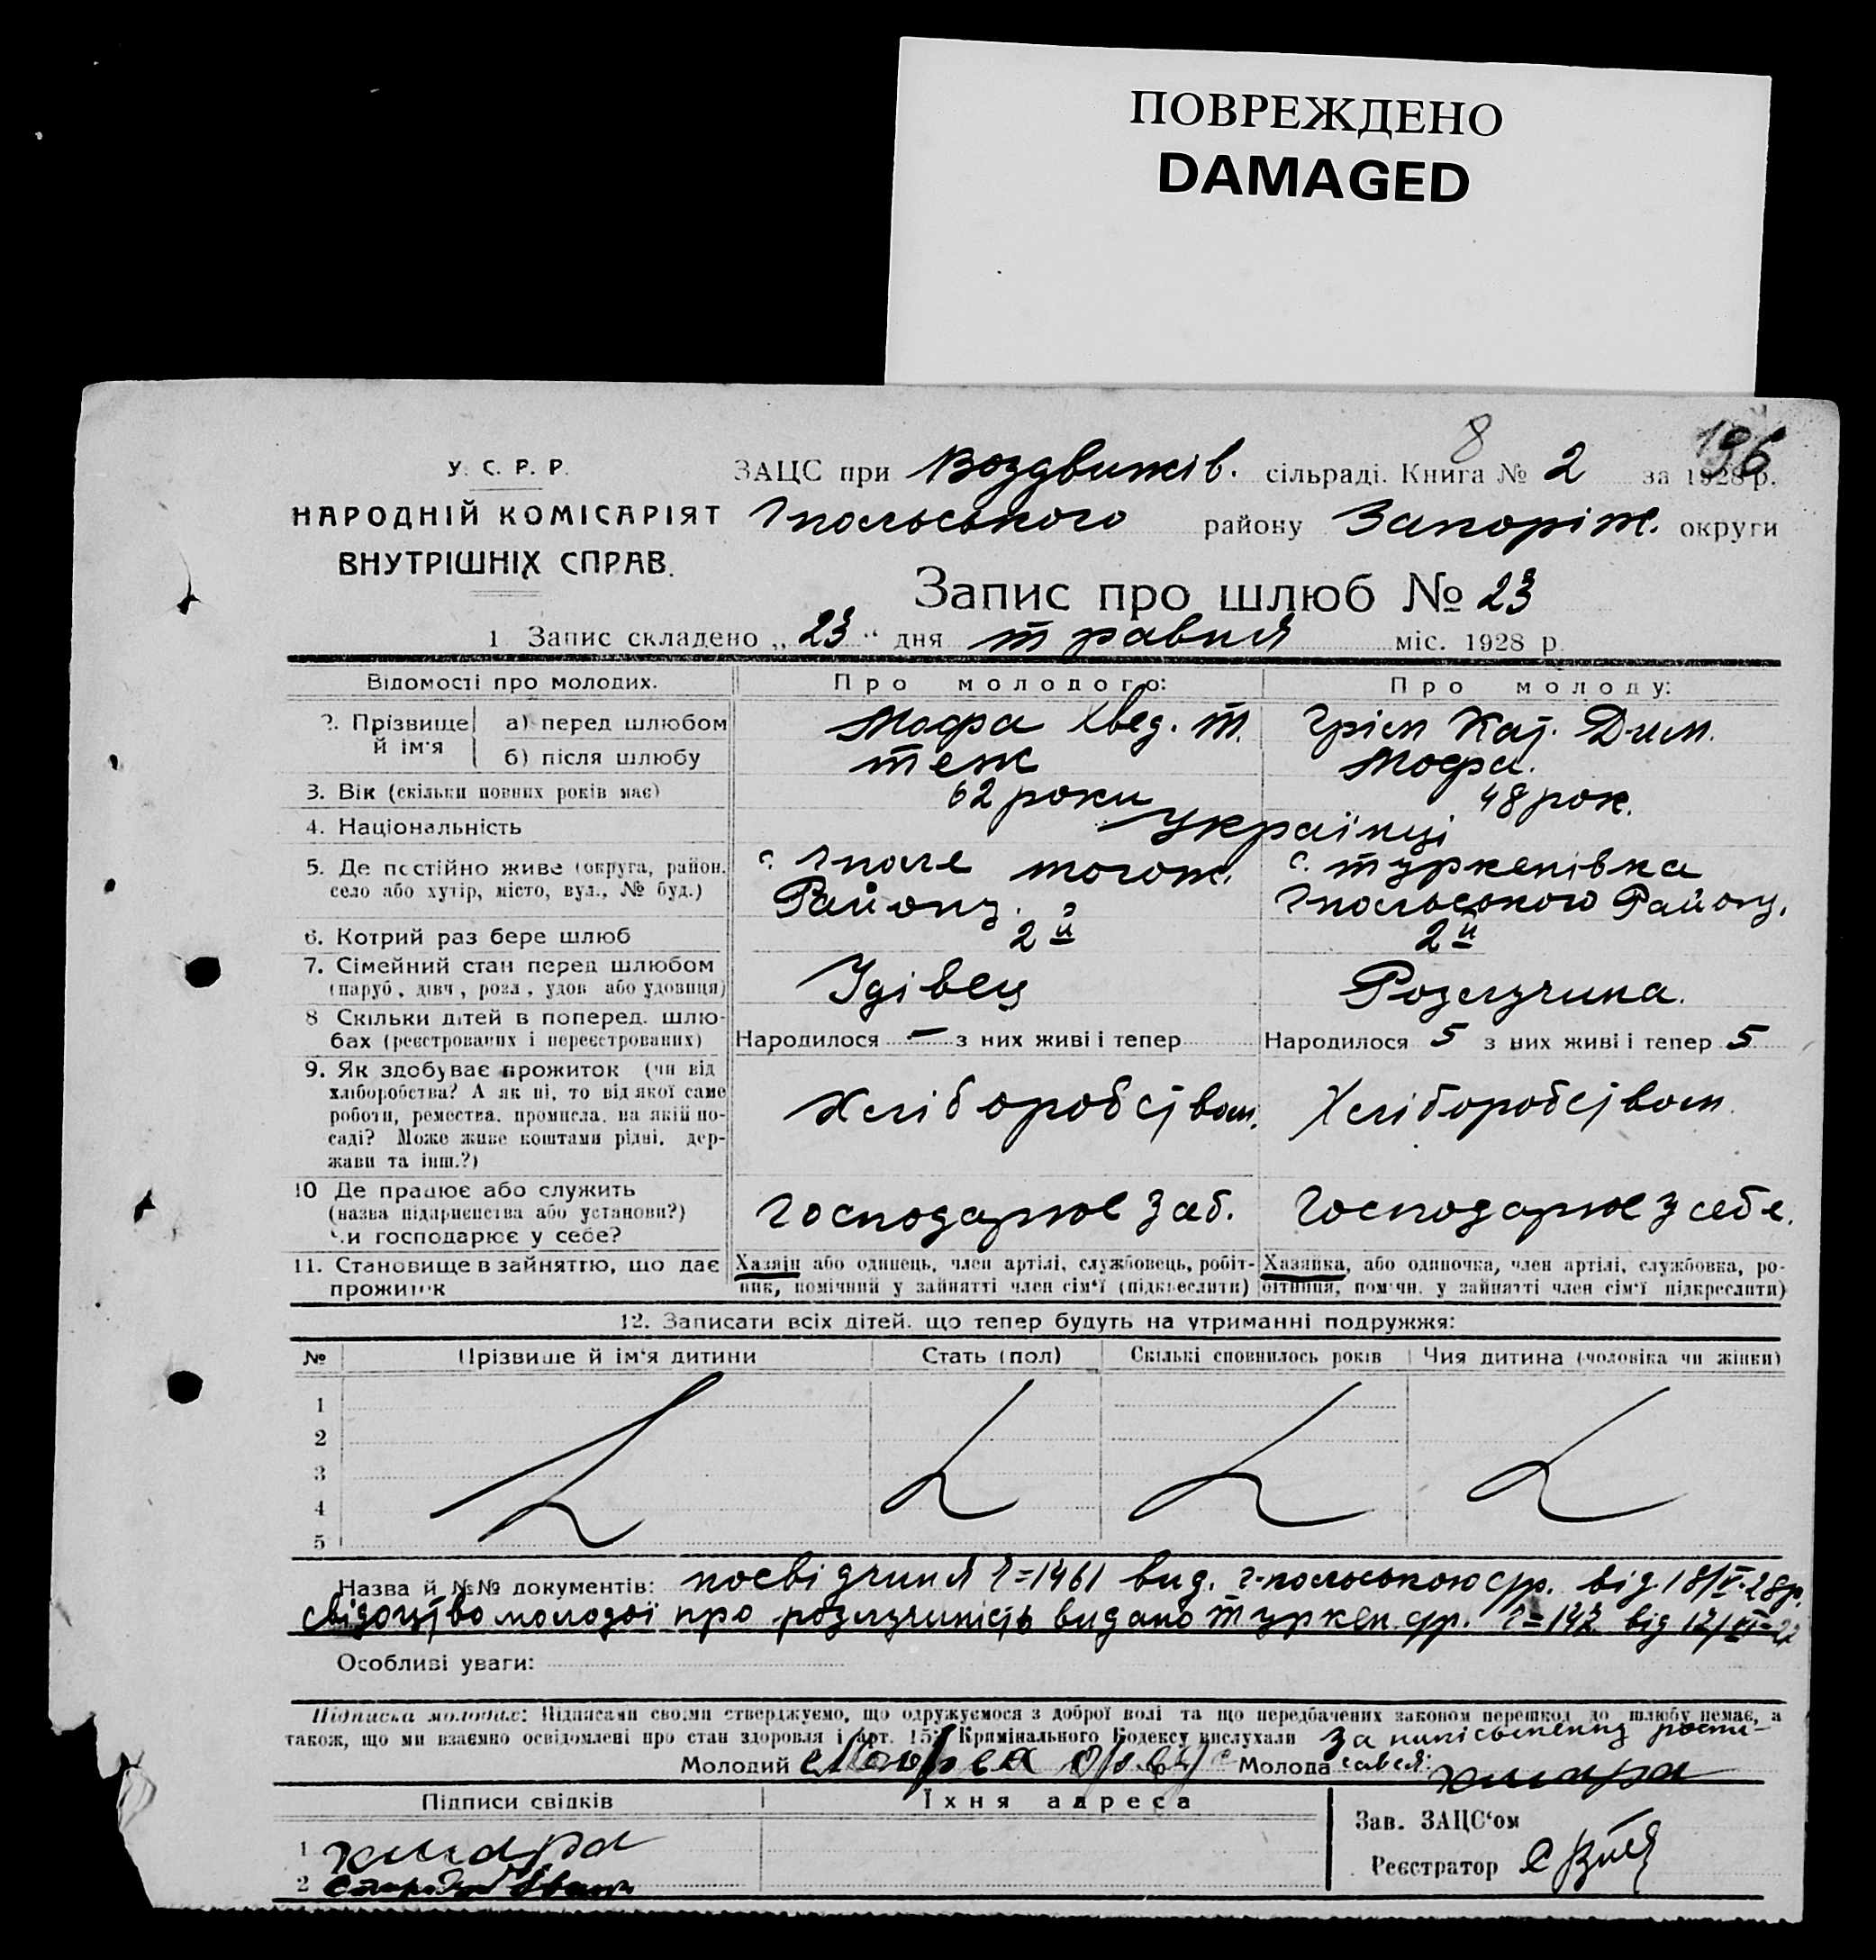 ПОВРЕЖДЕНО
DAMAGED
8 196
У. С. Р. Р.
НАРОДНІЙ КОМІСАРІЯТ
ВНУТРІШНІХ СПРАВ.
ЗАЦС при Воздвижів. сільраді. Книга № 2 за 1928 р.
Гпольського району Запоріж. округи
Запис про шлюб № 23
1 Запис складено „23“ дня травня міс. 1928 р
Відомості про молодих. Про молодого: Про молоду:
2. Прізвище й ім'я а) перед шлюбом Мофа Хвед. Т. Грім Кат. Дим.
б) після шлюбу теж Мофа.
3. Вік (скільки повних років має) 62 роки 48 рок.
4. Національність Українці
5. Де постійно живе (округа, район, с. Гполе тогож. с. Туркенівка
село або хутір, місто, вул., № буд.) Району. Гпольського Району.
6. Котрий раз бере шлюб 2й 2й
7. Сімейний стан перед шлюбом Удівец Розлучина.
(паруб, дівч, розл, удов або удовиця)
8 Скільки дітей в поперед. шлю-
бах (реєстрованих і нереєстрованих) Народилося – з них живі і тепер Народилося 5 з них живі і тепер 5
9. Як здобуває прожиток (чи від
хліборобства? А як ні, то від якої саме
роботи, ремества, промисла, на якій по- Хліборобством. Хліборобством
саді? Може живе коштами рідні, дер-
жави та інш.?)
10 Де працює або служить
(назва підприємства або установи?) Господарює Заб. Господарює У себе.
Чи господарює у себе?
11. Становище в зайняттю, що дає Хазяїн або одинець, член артілі, службовець, робіт- Хазяйка, або одиночка, член артілі, службовка, ро-
прожиток ник, помічний у зайнятті член сім'ї (підкреслити) бітниця, помічн. у зайнятті член сім'ї підкреслити)
12. Записати всіх дітей, що тепер будуть на утриманні подружжя:
№ Прізвише й ім'я дитини Стать (пол) Скількі сповнилось років Чия дитина (чоловіка чи жінки)
1
2
3
4
5
Назва й №№ документів: посвідчиня Г=1461 вид. Г-польською срр. від 18/V-28р.
свідоцтво молодої про розлучиність видано Туркен. срр. Г=142 від
Особливі уваги:
Підписка молодих: Підписами своїми стверджуємо, що одружуємося з доброї волі та що передбачених законом перешкод до шлюбу немає, а
також, що ми взаємно освідомлені про стан здоровля і арт. 15 Кримінального Кодексу вислухали За ниписьменну роспи-
Молодий Молода савсяi Хмара
Підписи свідків Їхня адреса
1 Хмара
2 Іван
Зав. ЗАЦС'ом
Реєстратор